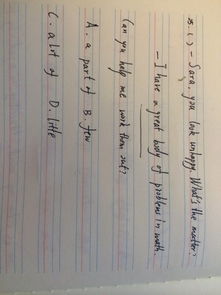 25. ( ) - Sara, you look unhappy. What's the matter?
- I have a great body of problems in math.
Can you help me work them out?
A. a part of B. few
C. a lot of D. little